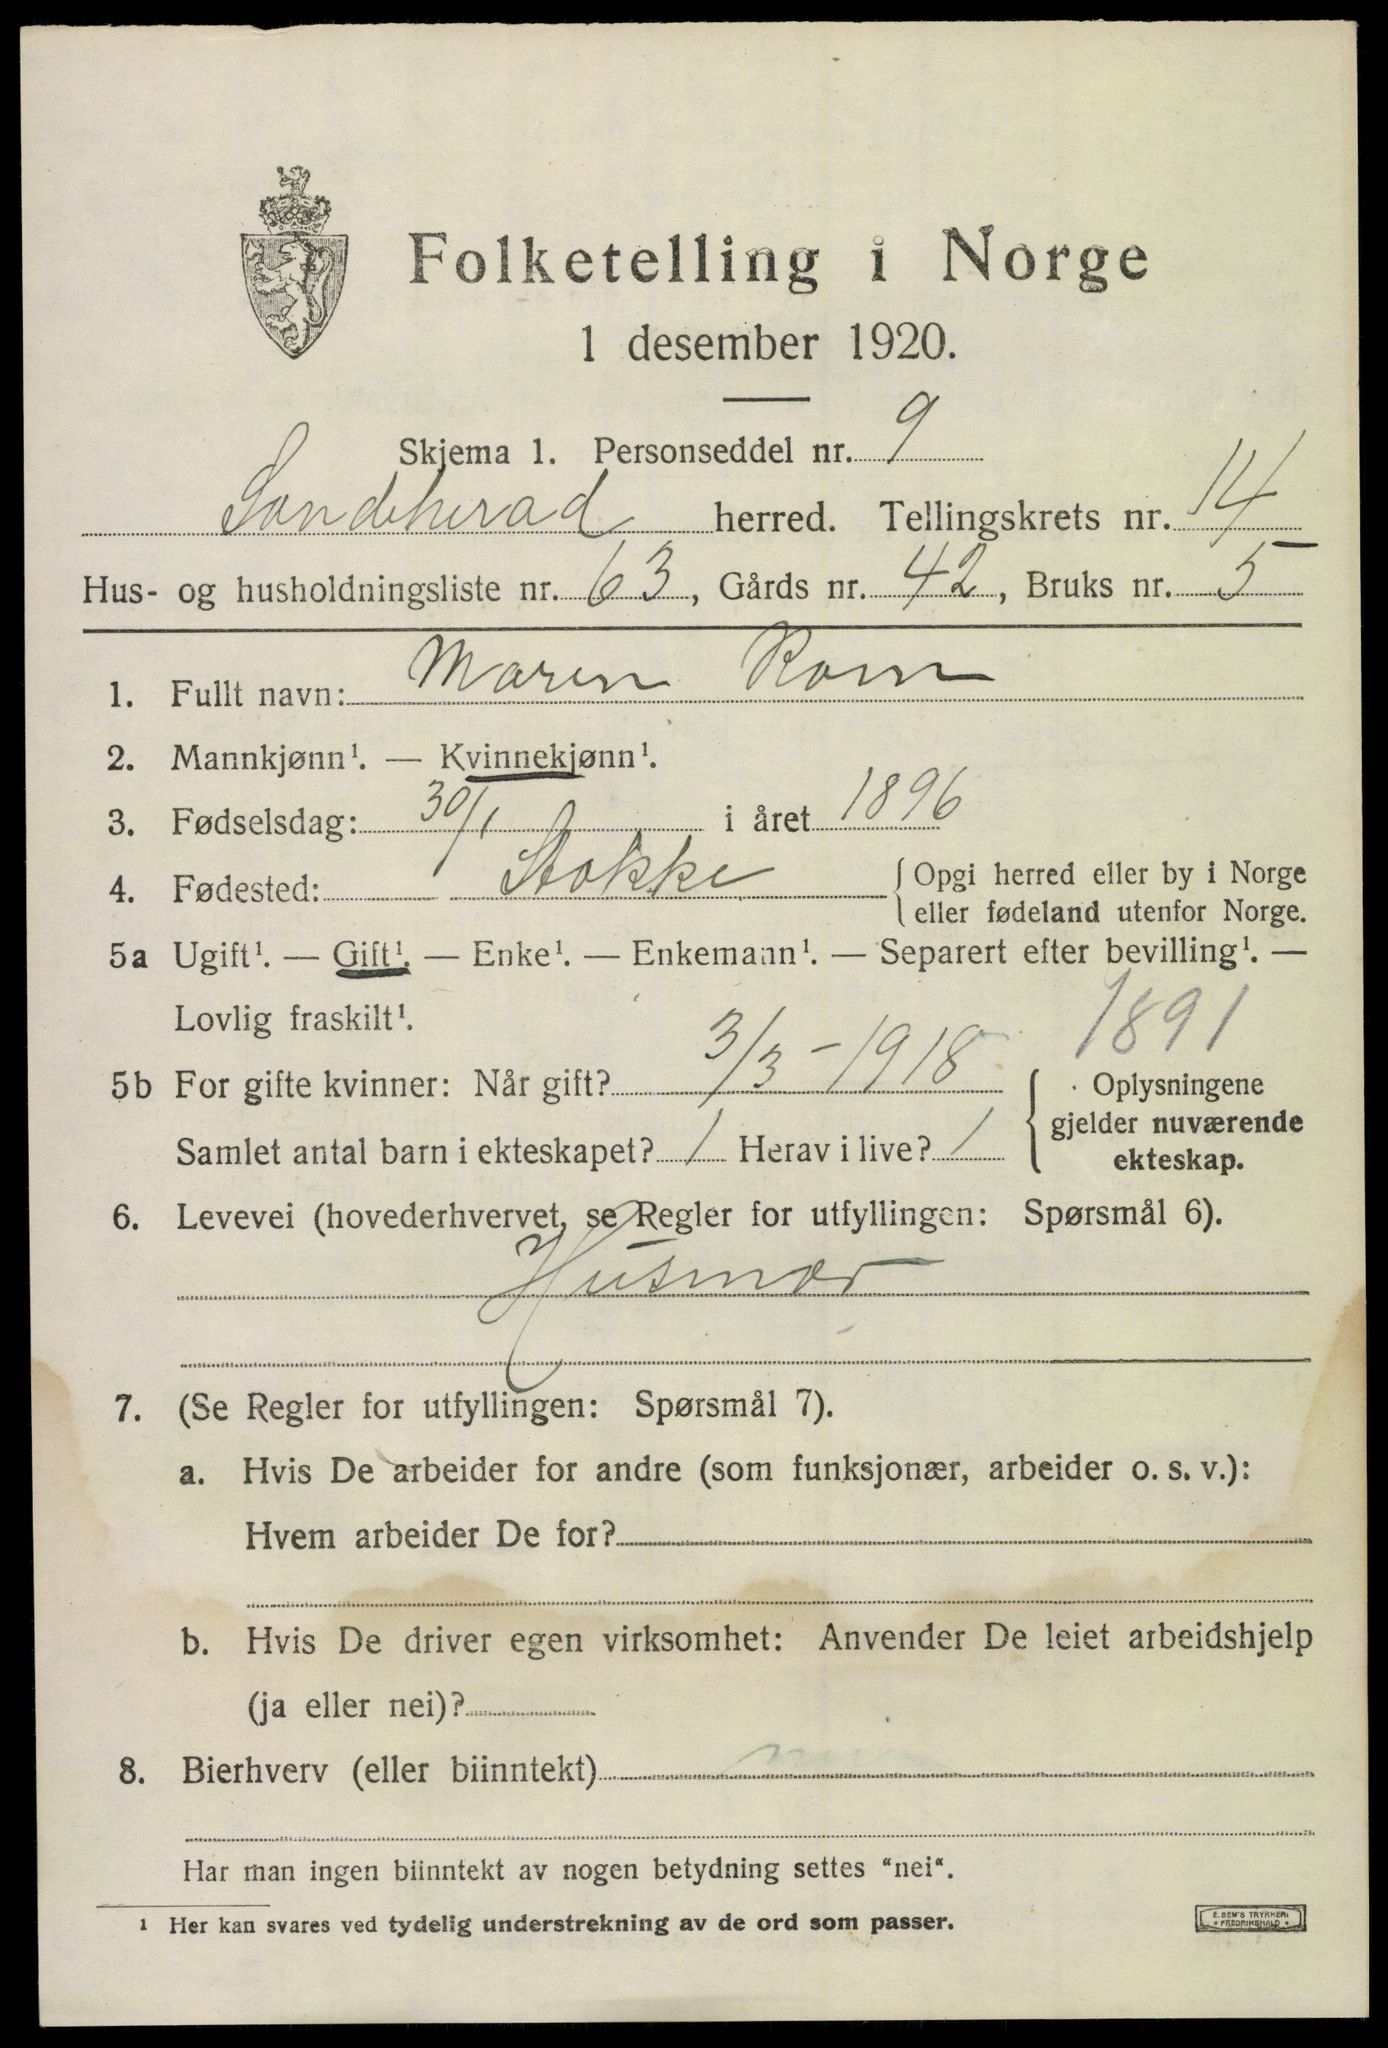 Folketelling i Norge
1 desember 1920.
Skjema 1. Personseddel nr. 9
Sandeherad herred. Tellingskrets nr. 14
Hus- og husholdningsliste nr. 63, Gårds nr. 42, Bruks nr. 5
1. Fullt navn: Maren Rom
2. Mannkjønn¹. — Kvinnekjønn¹.
3. Fødselsdag: 30/1 i året 1896
4. Fødested: Stokke { Opgi herred eller by i Norge
eller fødeland utenfor Norge.
5a Ugift¹. — Gift¹. — Enke¹. — Enkemann¹. — Separert efter bevilling¹. —
Lovlig fraskilt¹. 1891
5b For gifte kvinner: Når gift? 3/3-1918 { Oplysningene
gjelder nuværende
Samlet antal barn i ekteskapet? 1 Herav i live? 1 ekteskap.
6. Levevei (hovederhvervet, se Regler for utfyllingen: Spørsmål 6).
Husmor
7. (Se Regler for utfyllingen: Spørsmål 7).
a. Hvis De arbeider for andre (som funksjonær, arbeider o. s. v.):
Hvem arbeider De for?
b. Hvis De driver egen virksomhet: Anvender De leiet arbeidshjelp
(ja eller nei)?
8. Bierhverv (eller biinntekt)
Har man ingen biinntekt av nogen betydning settes "nei".
¹ Her kan svares ved tydelig understrekning av de ord som passer.
E. SEM'S TRYKKERI
* FREDRIKSHALD *